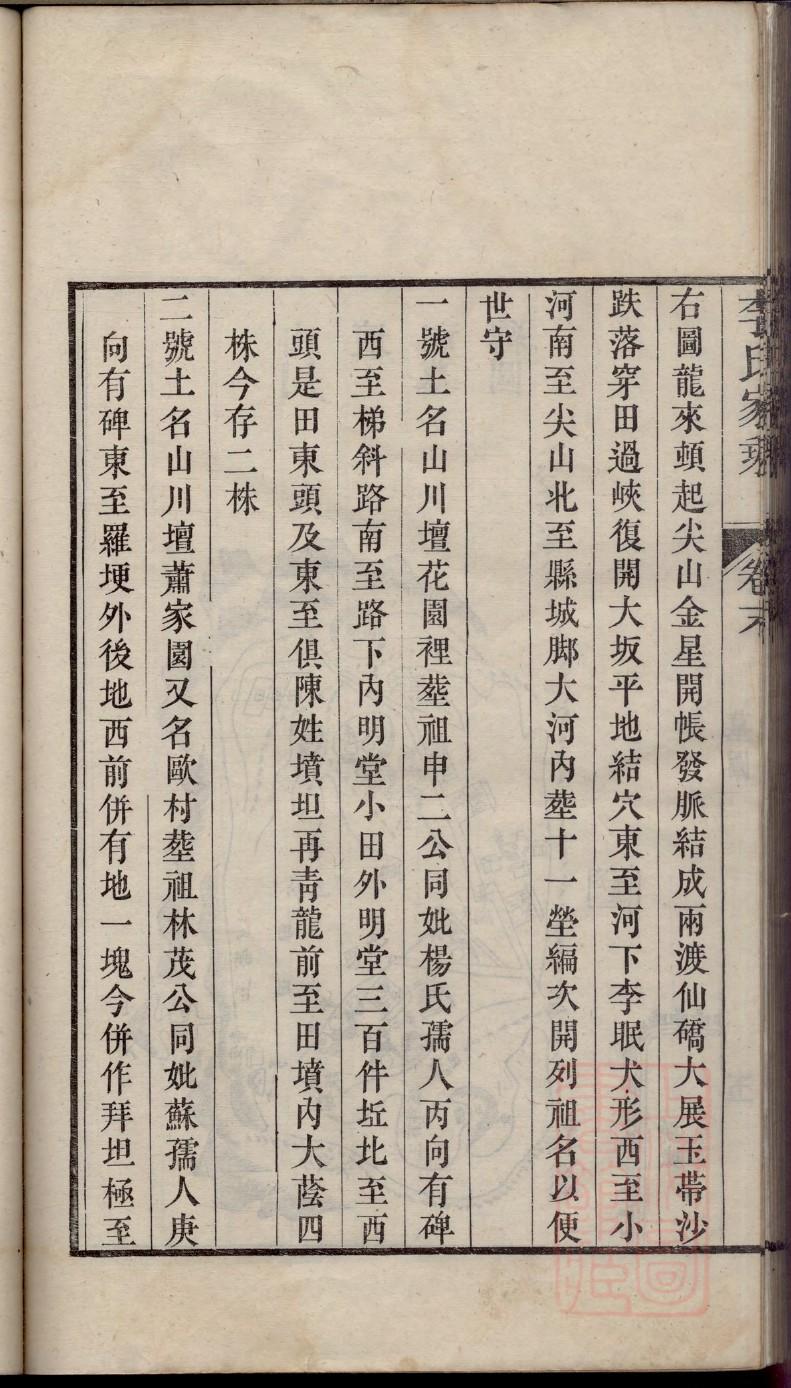 李氏家乘
卷末
右圖龍來頓起尖山金星開帳發脈結成兩渡仙礄大展玉帶沙
跌落穿田過峽復開大坂平地結穴東至河下李眠犬形西至小
河南至尖山北至縣城脚大河內塟十一塋編次開列祖名以便
世守
一號土名山川壇花園裡塟祖申二公同妣楊氏孺人丙向有碑
西至梯斜路南至路下內明堂小田外明堂三百件坵北至西
頭是田東頭及東至俱陳姓墳坦再青龍前至田墳內大蔭四
株今存二株
二號土名山川壇蕭家園又名歐村塟祖林茂公同妣蘇孺人庚
向有碑東至羅埂外後地西前併有地一塊今併作拜坦極至